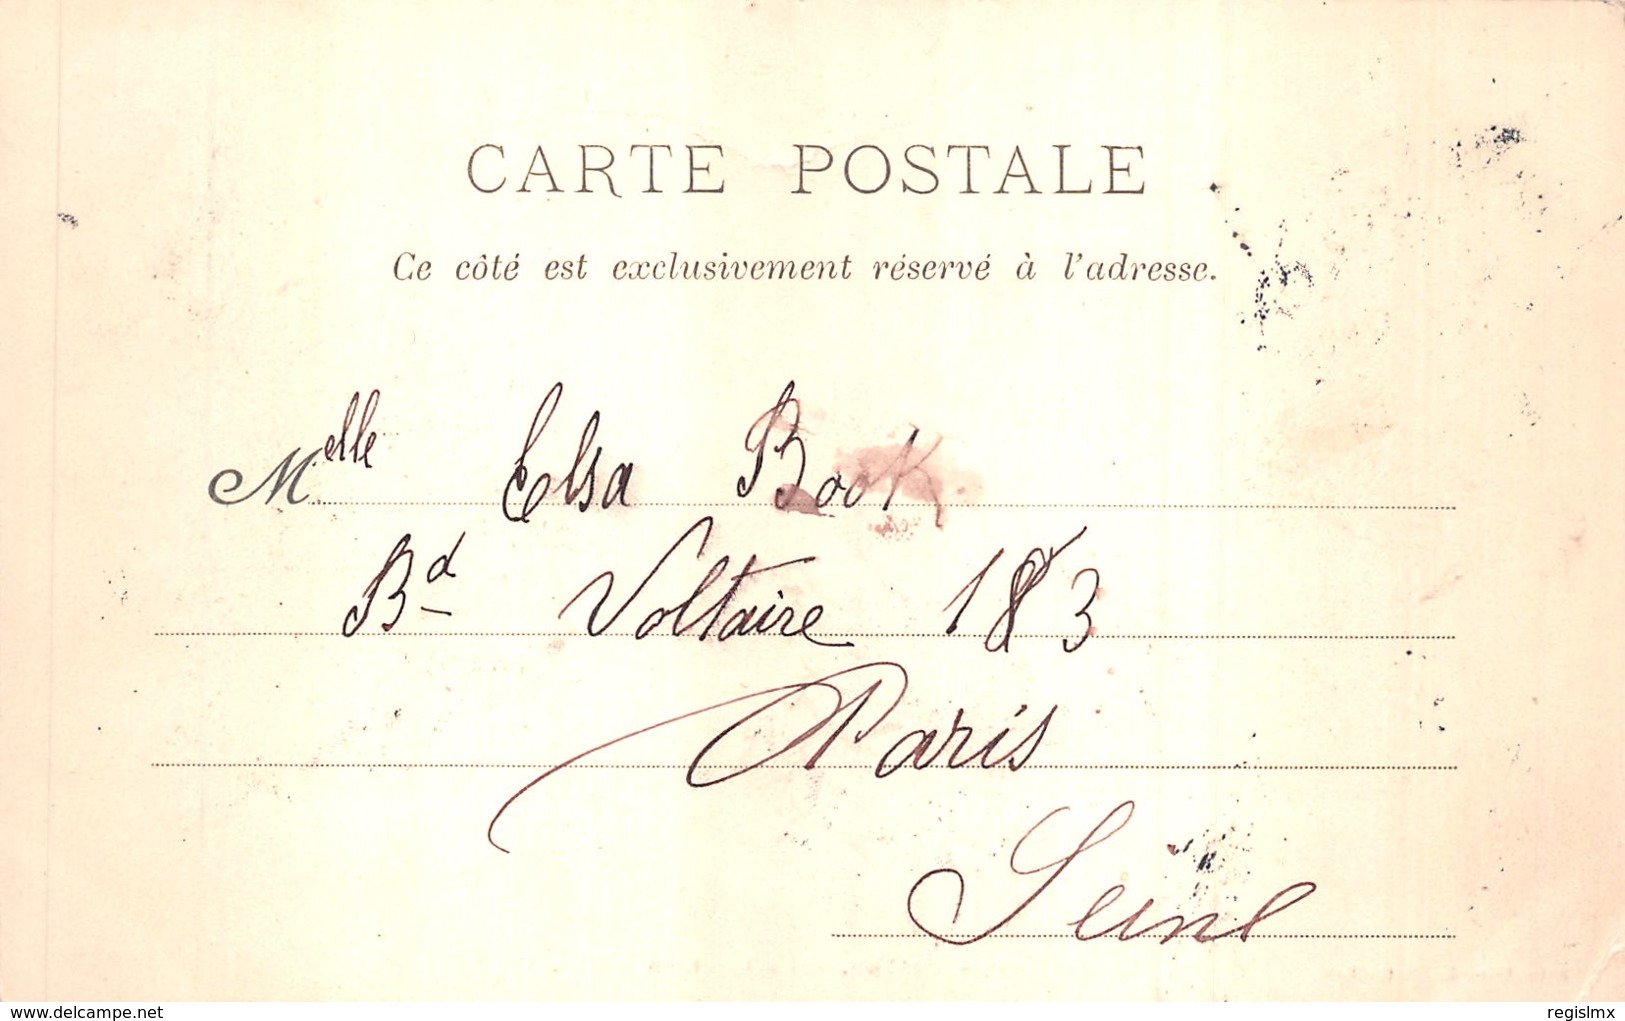 CARTE POSTALE
Ce côté est exclusivement réservé à l'adresse.
Melle Elsa Book
Bd Voltaire 183
Paris
Seine
www.delcampe.net
regislmx